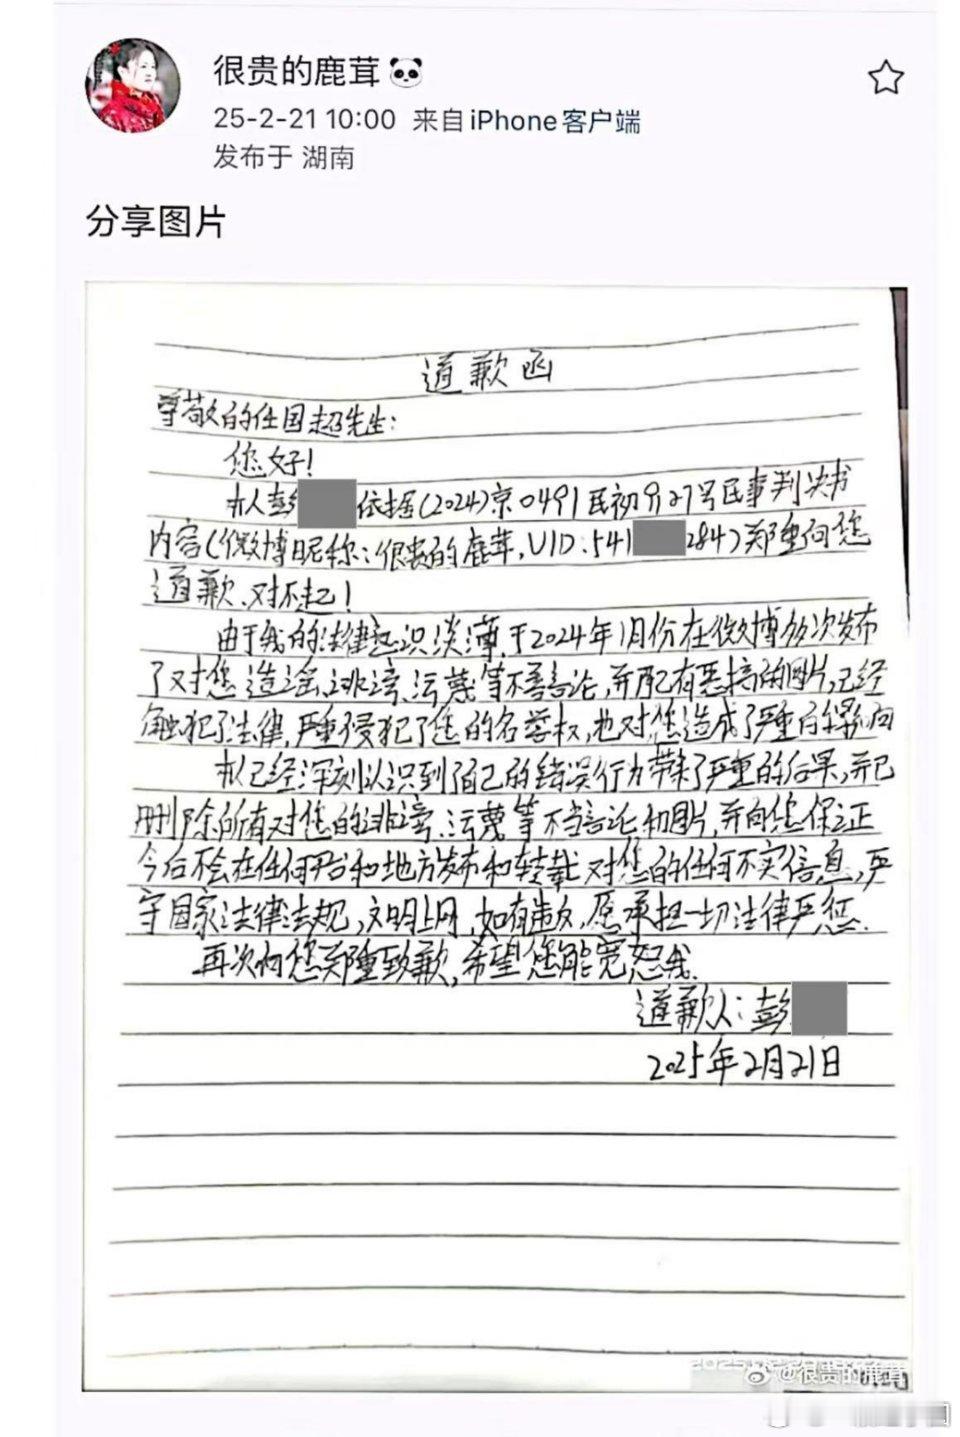 很贵的鹿茸🐼
25-2-21 10:00 来自 iPhone客户端
发布于 湖南
分享图片
道歉函
尊敬的任国超先生：
您好！
本人彭 依据(2024)京0491民初9127号民事判决书
内容(微博昵称：很贵的鹿茸,UID:541 284)郑重向您
道歉、对不起！
由于我的法律意识淡薄,于2024年1月份在微博多次发布
了对您造谣、诽谤、污蔑等不善言论,并配有恶搞的图片,已经
触犯了法律,严重侵犯了您的名誉权,也对您造成了严重的影响
本人已经深刻认识到自己的错误行为带来了严重的后果,并已
删除所有对您的诽谤、污蔑等不当言论和图片,并向您保证
今后不会在任何平台和地方发布和转载对您的任何不实信息,严
守国家法律法规,文明上网,如有违反,愿承担一切法律严惩.
再次向您郑重致歉,希望您能宽恕我.
道歉人：彭
2025年2月21日
@很贵的鹿茸